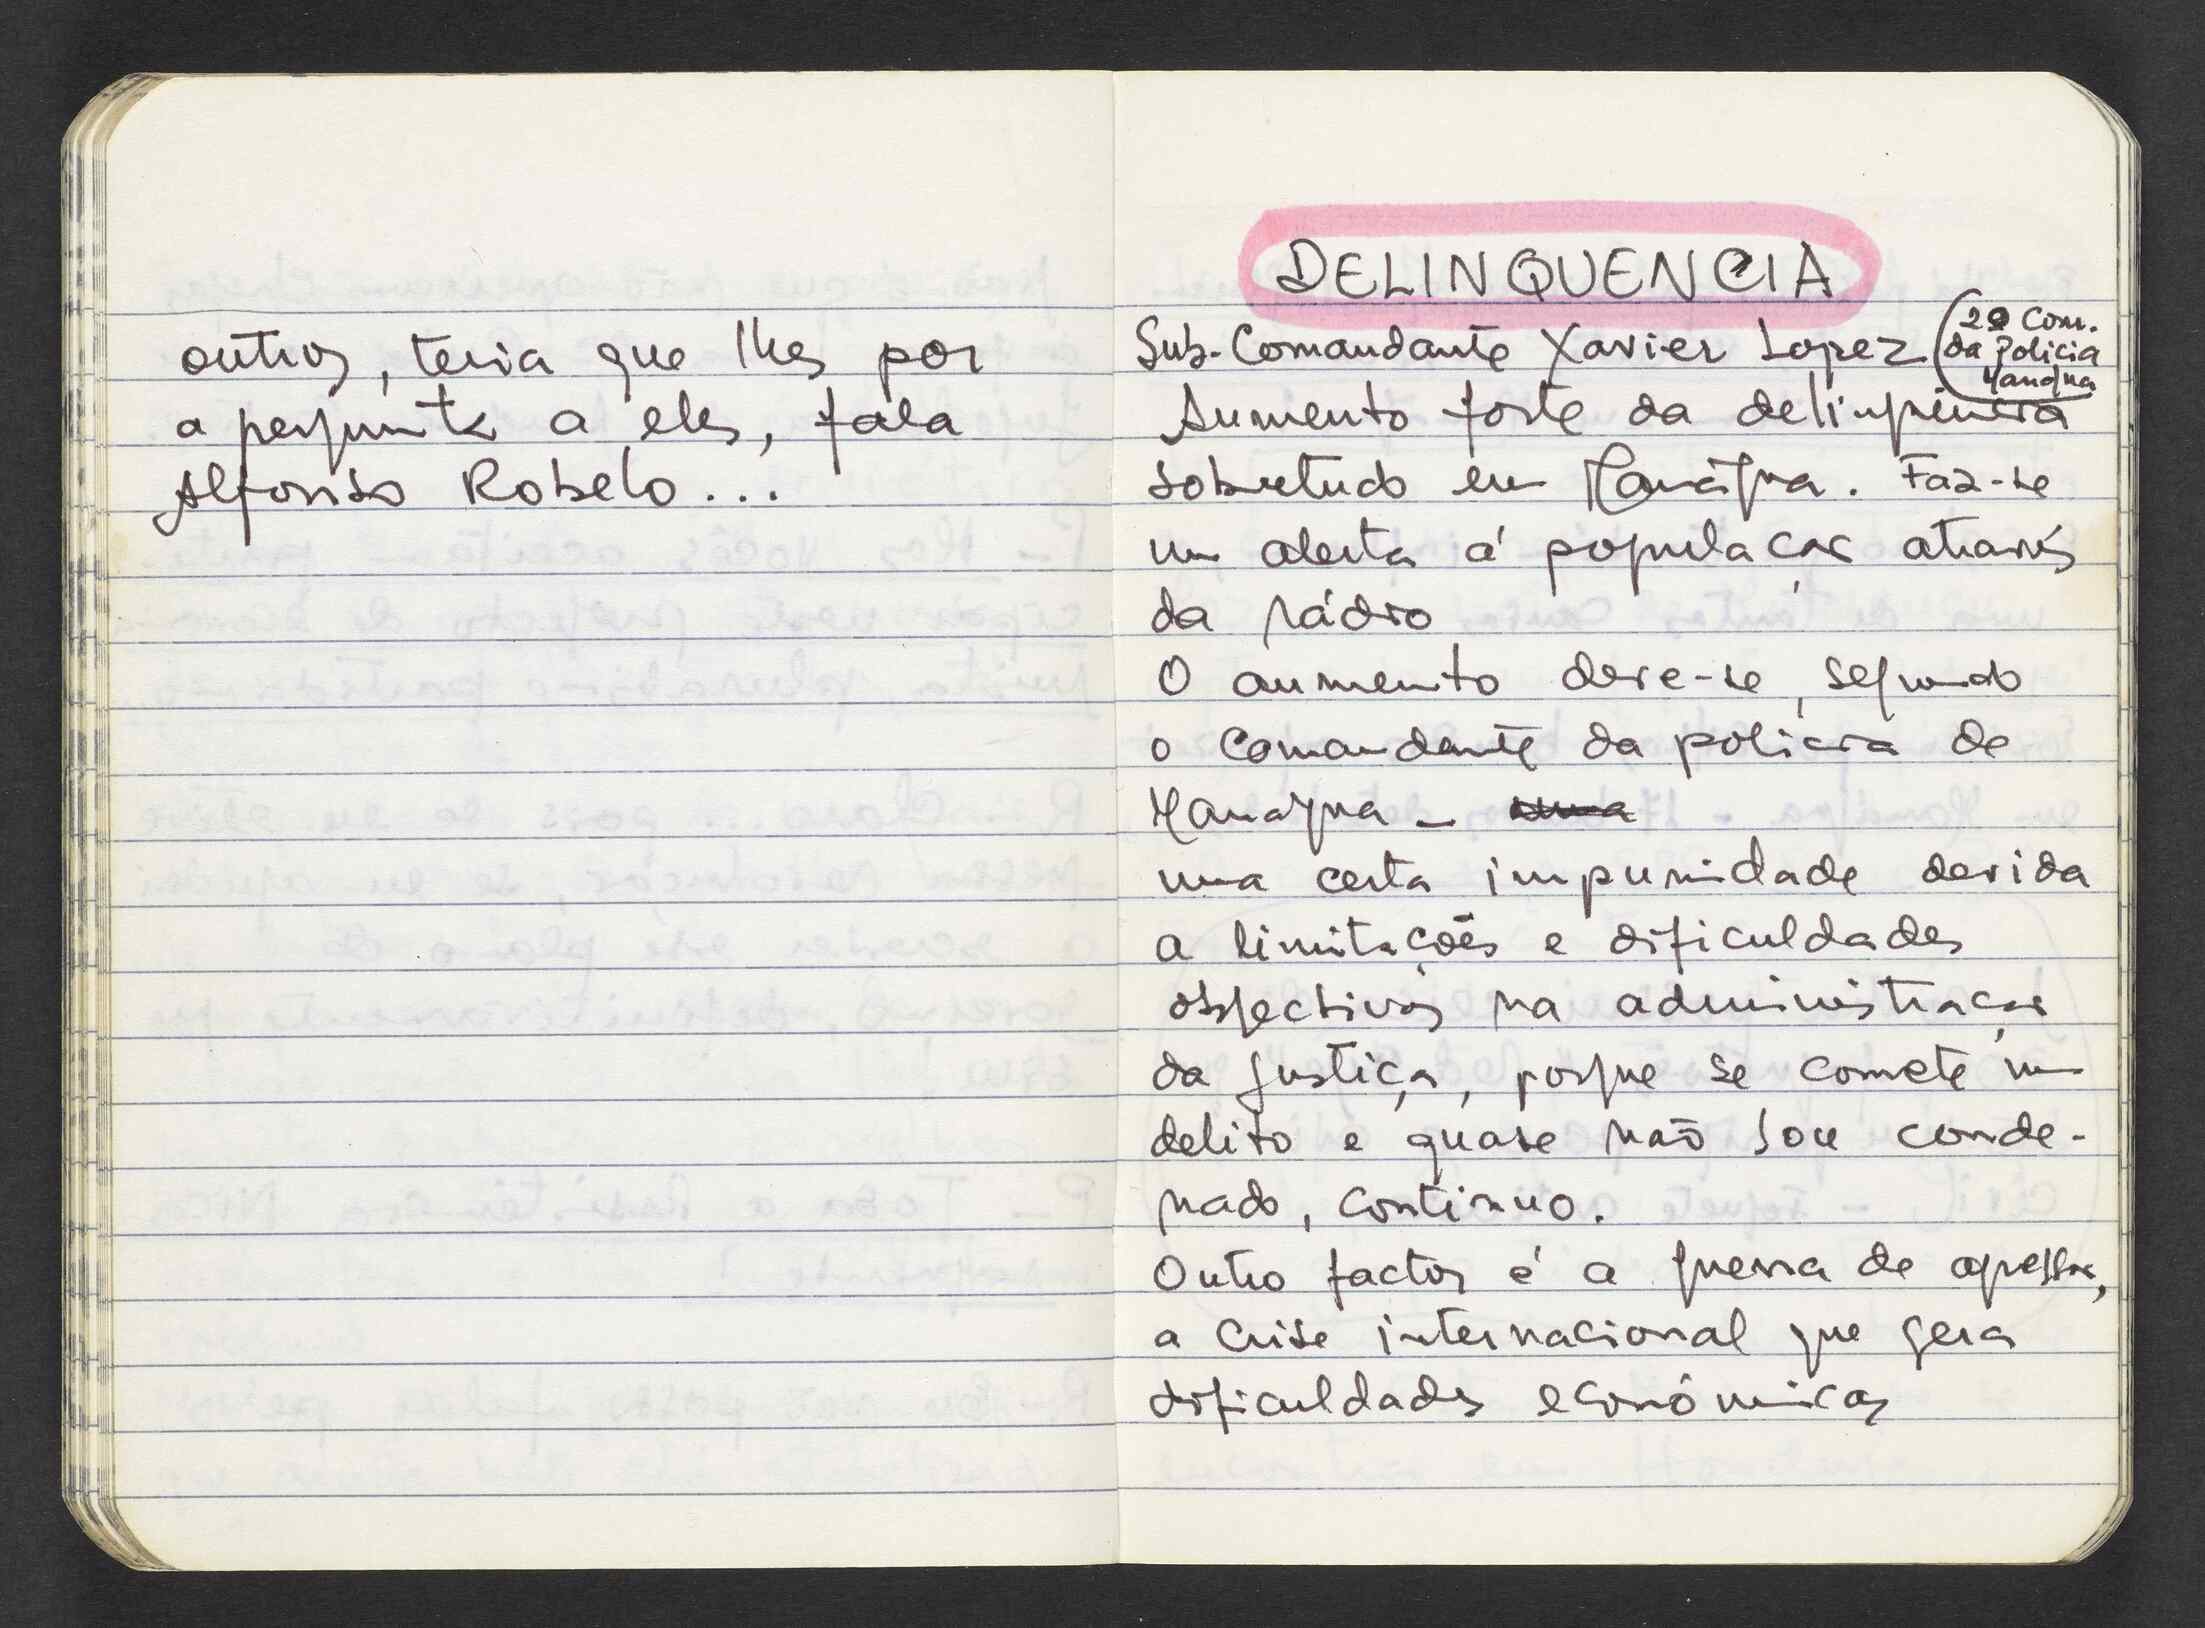 outros, teria que lhes por
a pergunta a eles, fala
Alfonso Robelo...
DELINQUENCIA
Sub-Comandante Xavier Lopez (2º Com.
da Policia
Managua
Aumento forte da delinquência
sobretudo em Manágua. Faz-se
um alerta á população através
da rádio
O aumento deve-se, segundo
o Comandante da policia de
Managua - uma
uma certa impunidade devida
a limitações e dificuldades
objectivas na administração
da justiça, porque se comete um
delito e quase não sou conde-
nado, continuo.
Outro factor é a guerra de agressão,
a crise internacional que gera
dificuldades económicas